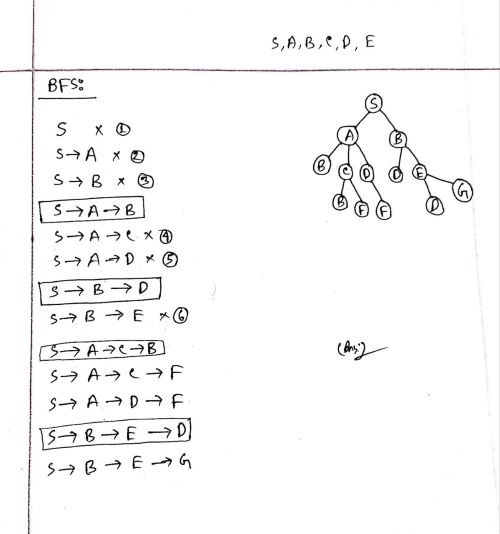 S, A, B, C, D, E
BFS:
S × ①
S → A × ②
S → B × ③
S → A → B
S → A → C × ④
S → A → D × ⑤
S → B → D
S → B → E × ⑥
S → A → C → B
S → A → C → F
S → A → D → F
S → B → E → D
S → B → E → G
S
A B
B C D D E G
B F F D
(Ans:)